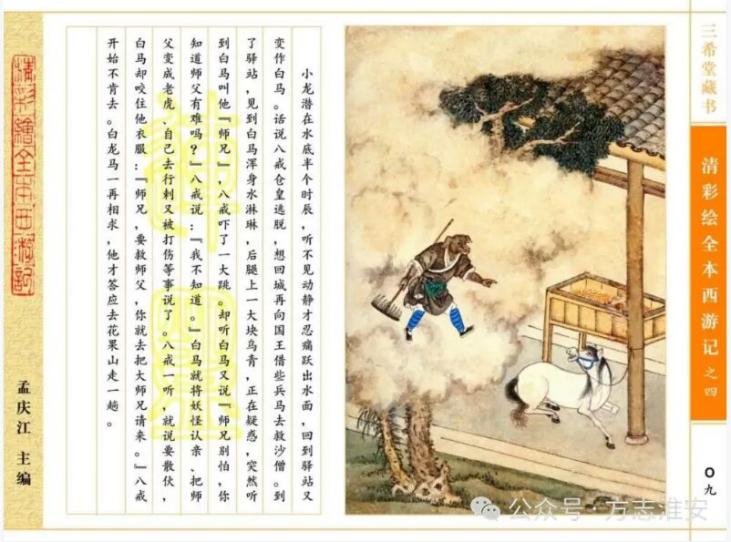 三希堂藏书
清彩绘全本西游记 之四
〇九
小龙潜在水底半个时辰，听不见动静才忍痛跃出水面，回到驿站又
变作白马。话说八戒仓皇逃脱，想回城再向国王借些兵马去救沙僧。到
了驿站，见到白马浑身水淋淋，后腿上一大块乌青，正在疑惑，突然听
到白马叫他『师兄』，八戒吓了一大跳。却听白马又说『师兄别怕，你
知道师父有难吗？』八戒说：『我不知道。』白马就将妖怪认亲、把师
父变成老虎、自己去行刺又被打伤等事说了。八戒一听，就说要散伙，
白马却咬住他衣服：『师兄，要救师父，你就去把大师兄请来。』八戒
开始不肯去。白龙马一再相求，他才答应去花果山走一趟。
清彩繪全本西游記
孟庆江 主编
公众号·方志淮安